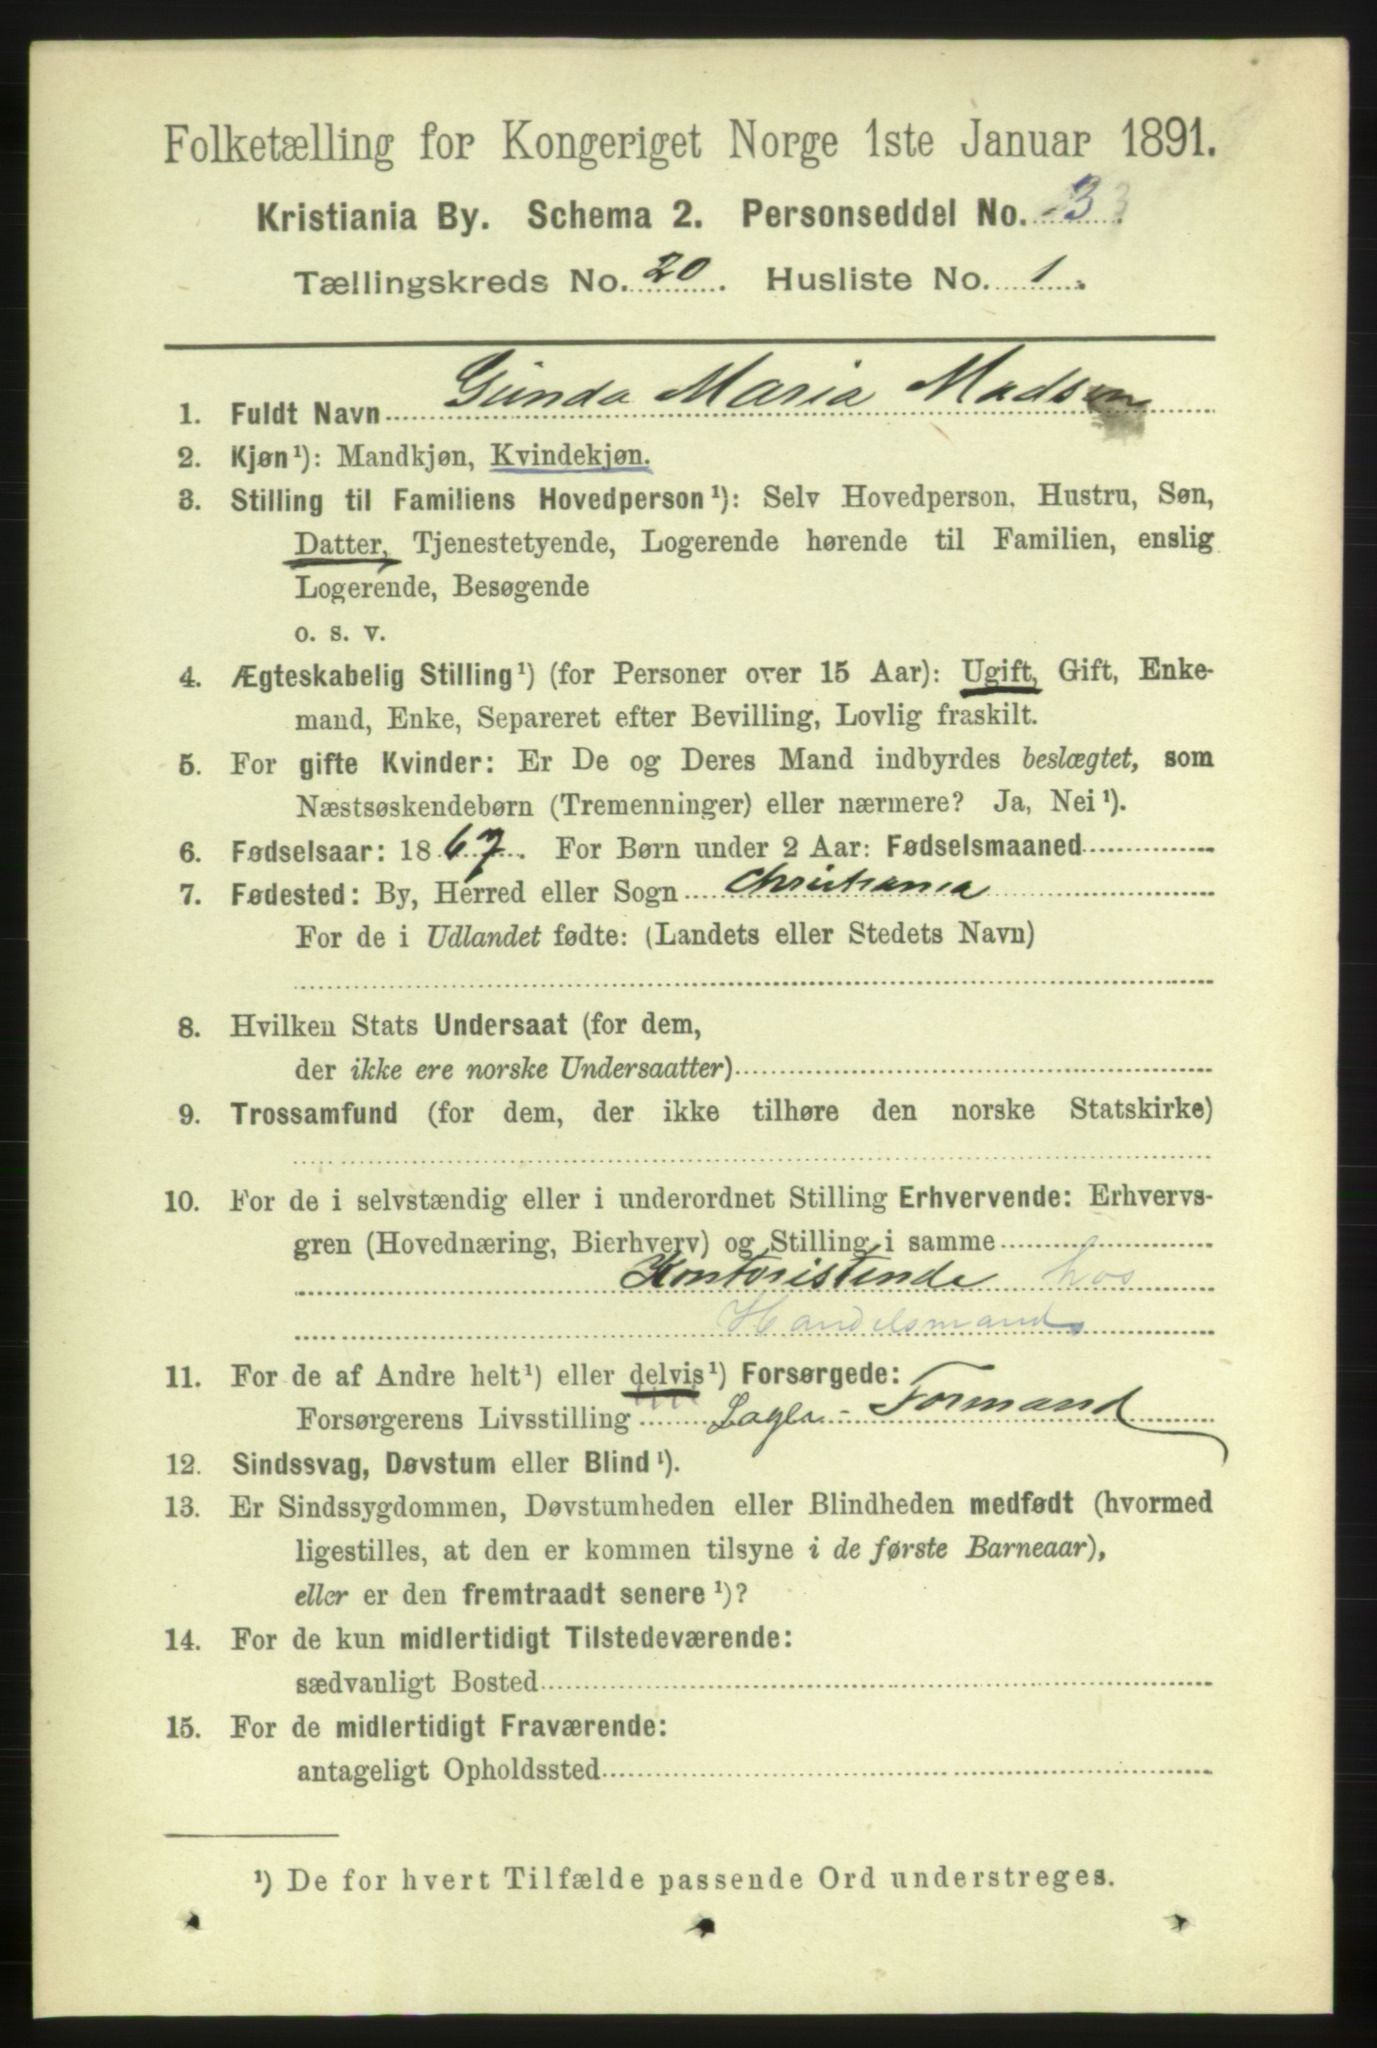 Folketælling for Kongeriget Norge 1ste Januar 1891.
Kristiania By. Schema 2. Personseddel No. 3
Tællingskreds No. 20. Husliste No. 1.
1. Fuldt Navn Gunda Maria Madsen
2. Kjøn¹): Mandkjøn, Kvindekjøn.
3. Stilling til Familiens Hovedperson¹): Selv Hovedperson, Hustru, Søn,
Datter, Tjenestetyende, Logerende hørende til Familien, enslig
Logerende, Besøgende
o. s. v.
4. Ægteskabelig Stilling¹) (for Personer over 15 Aar): Ugift, Gift, Enke-
mand, Enke, Separeret efter Bevilling, Lovlig fraskilt.
5. For gifte Kvinder: Er De og Deres Mand indbyrdes beslægtet, som
Næstsøskendebørn (Tremenninger) eller nærmere? Ja, Nei¹).
6. Fødselsaar: 1867. For Børn under 2 Aar: Fødselsmaaned
7. Fødested: By, Herred eller Sogn Christiania
For de i Udlandet fødte: (Landets eller Stedets Navn)
8. Hvilken Stats Undersaat (for dem,
der ikke ere norske Undersaatter)
9. Trossamfund (for dem, der ikke tilhøre den norske Statskirke)
10. For de i selvstændig eller i underordnet Stilling Erhvervende: Erhvervs-
gren (Hovednæring, Bierhverv) og Stilling i samme
Kontoristinde hos
Handelsmand
11. For de af Andre helt¹) eller delvis¹) Forsørgede:
Forsørgerens Livsstilling Lager-Formand
12. Sindssvag, Døvstum eller Blind¹).
13. Er Sindssygdommen, Døvstumheden eller Blindheden medfødt (hvormed
ligestilles, at den er kommen tilsyne i de første Barneaar),
eller er den fremtraadt senere¹)?
14. For de kun midlertidigt Tilstedeværende:
sædvanligt Bosted
15. For de midlertidigt Fraværende:
antageligt Opholdssted
¹) De for hvert Tilfælde passende Ord understreges.